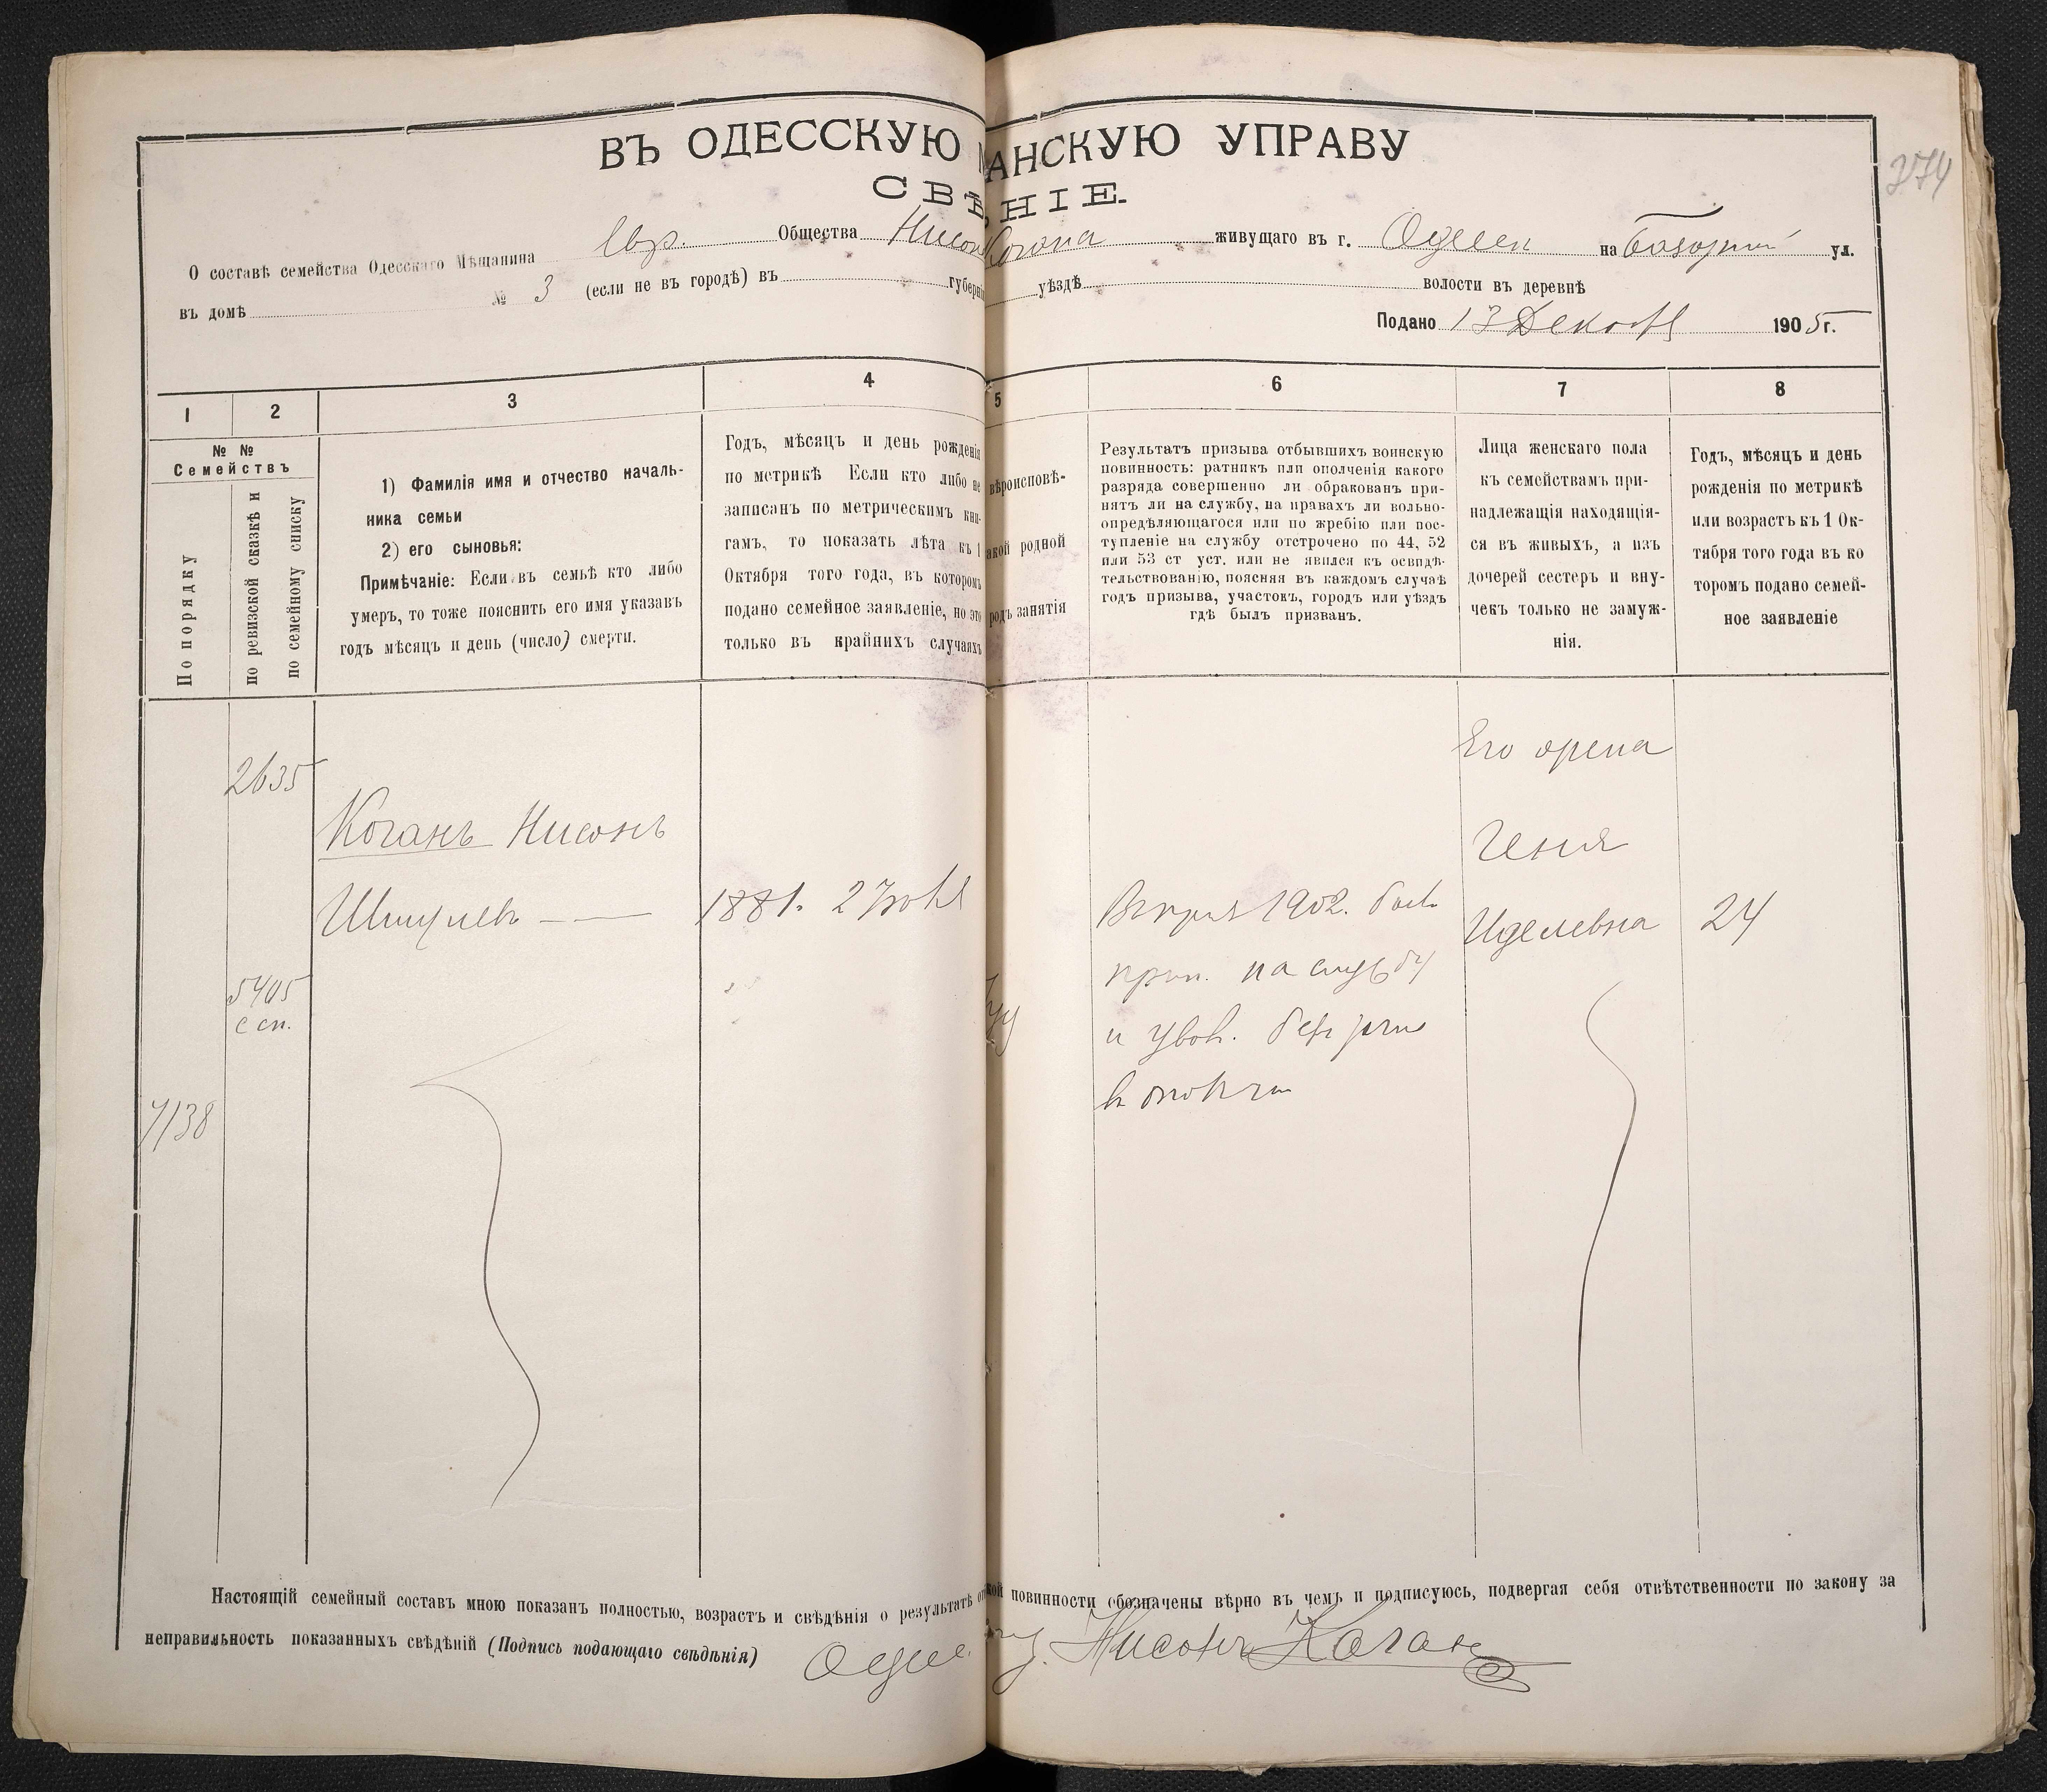 274
ВЪ ОДЕССКУЮ АНСКУЮ УПРАВУ
СВѢ НІЕ.
О составѣ семейства Одесскаго Мѣщанина Евр. Общества Нисон Когана живущаго въ г. Одессѣ на Базарной ул.
въ домѣ № 3 (если не въ городѣ) въ губерні уѣздѣ волости въ деревнѣ
Подано 13 Декабр 1905 г.
1 2 3 4 5 6 7 8
№ №
Семействъ
По порядку
по ревизской сказкѣ и
по семейному списку
1) Фамилія имя и отчество началь-
ника семьи
2) его сыновья:
Примѣчаніе: Если въ семьѣ кто либо
умеръ, то тоже пояснить его имя указавъ
годъ мѣсяцъ и день (число) смерти.
Годъ, мѣсяцъ и день рожденія
по метрикѣ Если кто либо не
записанъ по метрическимъ кни-
гамъ, то показать лѣта къ 1
Октября того года, въ которомъ
подано семейное заявленіе, но это
только въ крайнихъ случаяхъ
вѣроисповѣ-
акой родной
родъ занятія
Результатъ призыва отбывшихъ воинскую
повинность: ратникъ или ополченія какого
разряда совершенно ли обракованъ при-
нятъ ли на службу, на правахъ ли вольно-
опредѣляющагося или по жребію или пос-
тупленіе на службу отстрочено по 44, 52
или 53 ст уст. или не явился къ освидѣ-
тельствованію, поясняя въ каждомъ случаѣ
годъ призыва, участокъ, городъ или уѣздъ
гдѣ былъ призванъ.
Лица женскаго пола
къ семействамъ при-
надлежащія находящія-
ся въ живыхъ, а изъ
дочерей сестеръ и вну-
чекъ только не замуж-
нія.
Годъ, мѣсяцъ и день
рожденія по метрикѣ
или возрастъ къ 1 Ок-
тября того года въ ко
торомъ подано семей-
ное заявленіе
2635
Коганъ Нисонъ
Шмулев
1881. 2
5405
с сп.
7138
1902.
прин. на службу
и
Его жена
Геня
Иделевна
24
Настоящій семейный составъ мною показанъ полностью, возрастъ и свѣдѣнія о результатѣ от кой повинности обозначены вѣрно въ чемъ и подписуюсь, подвергая себя отвѣтственности по закону за
неправильность показанныхъ свѣдѣній (Подпись подающаго свѣдѣнія) Одес. Нисонъ Коганъ